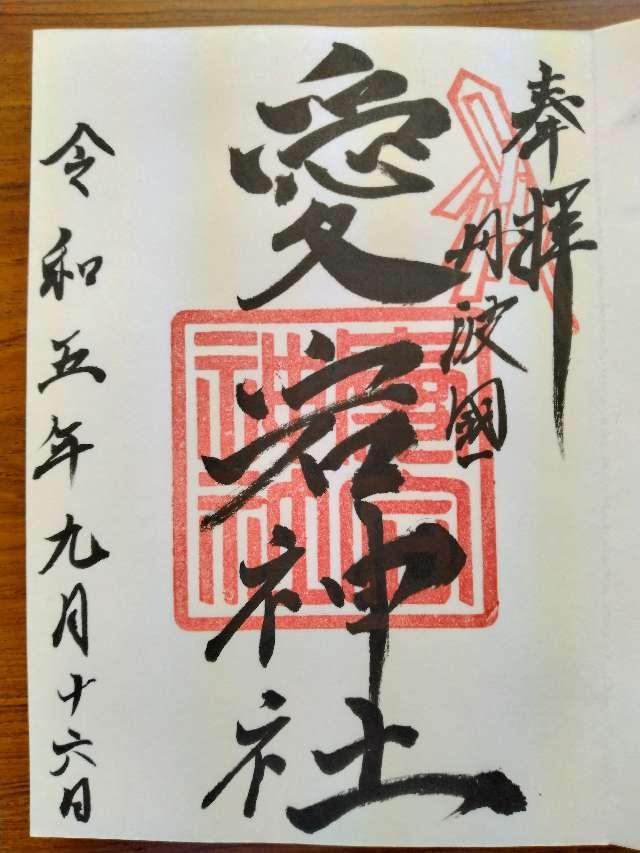 奉拝
丹波國
愛宕神社
令和五年九月十六日